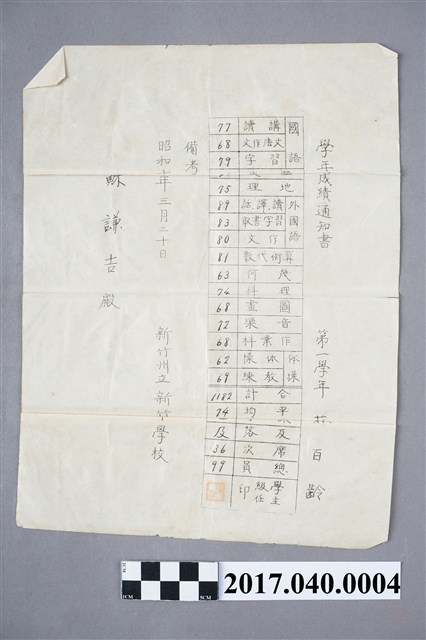 學年成績通知書
第一學年 百齡
國語 講讀 77
文法作文 68
習字 79
地理 75
外國語 讀、譯、話 89
習字書取 83
作文 80
算術代數 81
幾何 63
理科 74
圖畫 68
音樂 72
作業科 68
体操 体操 62
教練 69
合計 1182
平均 74
及落 及
席次 36
總員 99
學級主任印
備考
昭和 年三月二十日
新竹州立新竹學校
謙吉殿
2017.040.0004
1CM
5CM